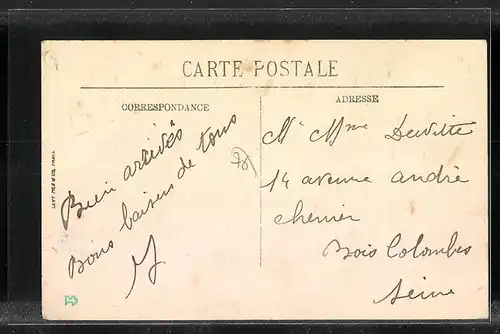 CARTE POSTALE
CORRESPONDANCE
Bien arrivés
Bons baisers de tous
ADRESSE
Mr Mme Dewitte
14 avenue andré
chenier
Bois Colombes
Seine